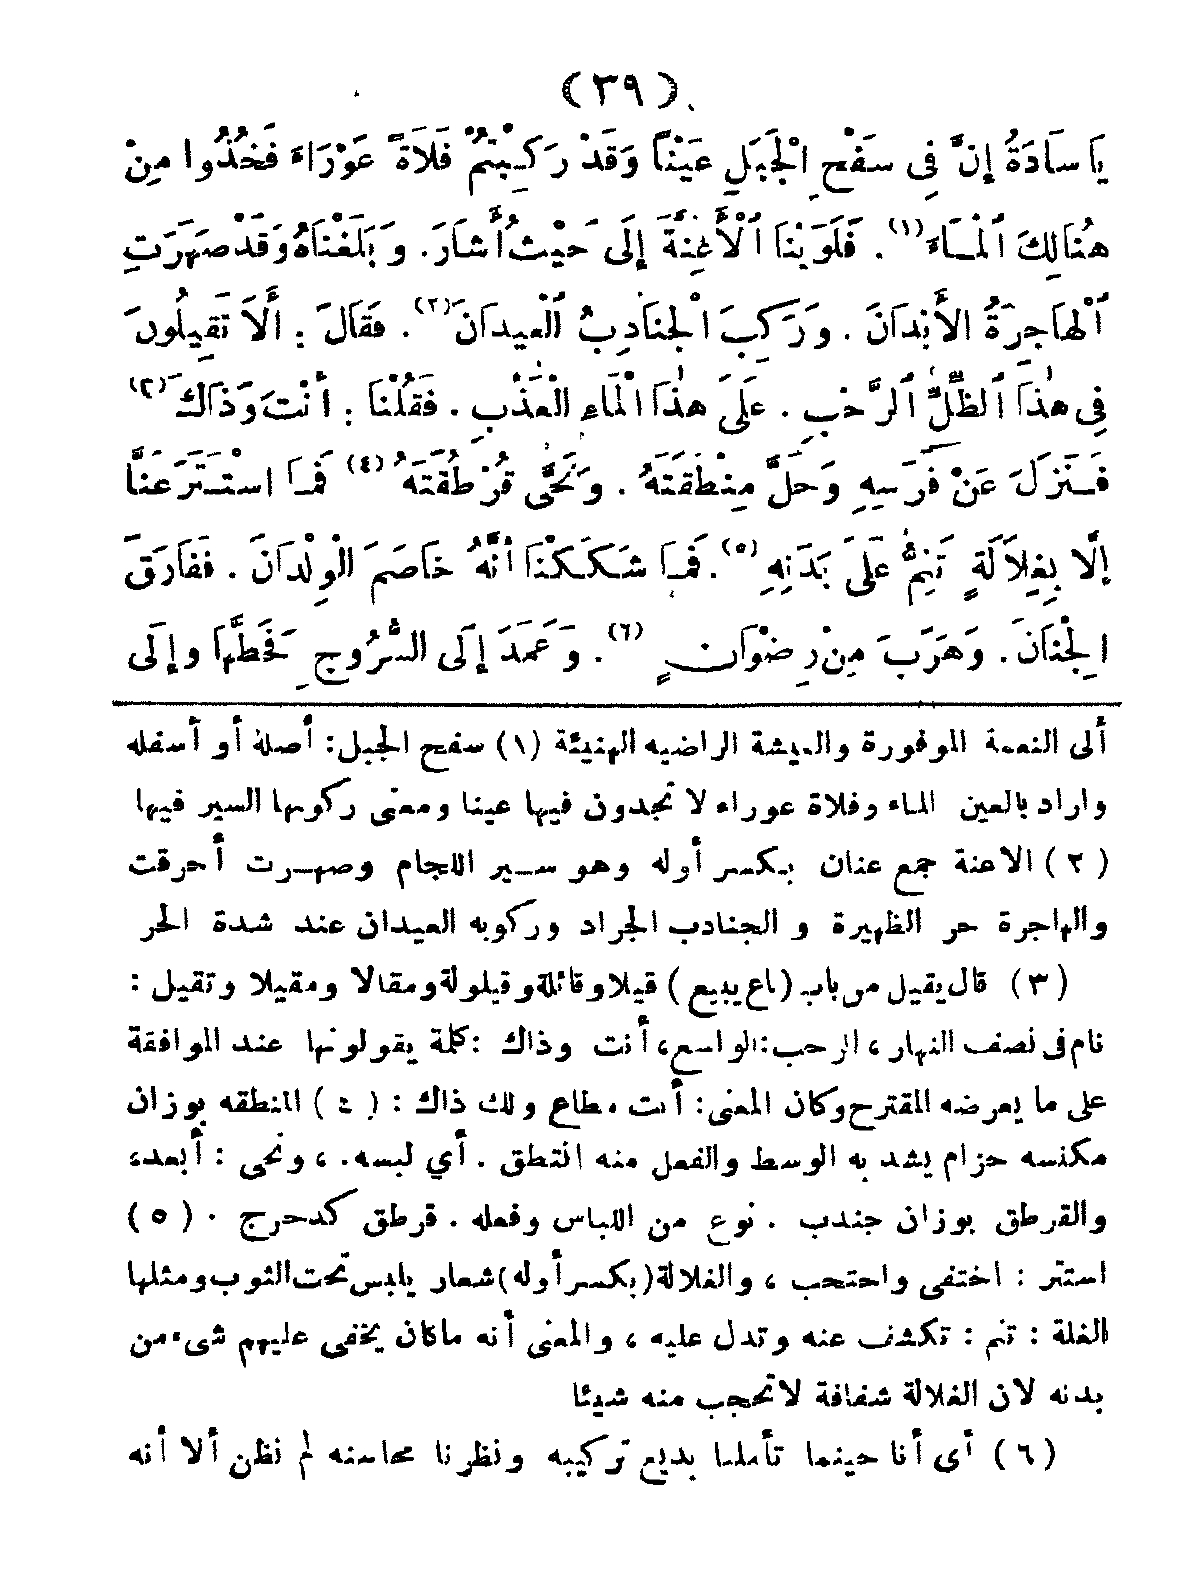 (٣٩)
يَا سَادَةُ إِنَّ فِي سَفْحِ الْجَبَلِ عَيْنًا وَقَدْ رَكِبْتُمْ فَلَاةً عَوْرَاءَ فَخُذُوا مِنْ
هُنَالِكَ الْمَاءَ (١) . فَلَوَيْنَا الْأَعِنَّةَ إِلَى حَيْثُ أَشَارَ . وَبَلَغْنَاهُ وَقَدْ صَهَرَتِ
الْهَاجِرَةُ الأَبْدَانَ . وَرَكِبَ الْجَنَادِبُ الْعِيدَانَ (٢) . فَقَالَ : أَلَا تَقِيلُونَ
فِي هٰذَا الظِّلِّ الرَّحْبِ . عَلَى هٰذَا الْمَاءِ الْعَذْبِ . فَقُلْنَا : أَنْتَ وَذَاكَ (٣)
فَنَزَلَ عَنْ فَرَسِهِ وَحَلَّ مِنْطَقَتَهُ . وَنَحَّى قُرْطُقَتَهُ (٤) فَمَا اسْتَتَرَ عَنَّا
إِلَّا بِغِلَالَةٍ تَنِمُّ عَلَى بَدَنِهِ (٥) . فَمَا شَكَكْنَا أَنَّهُ خَاصَمَ الْوِلْدَانَ . فَفَارَقَ
الْجِنَانَ . وَهَرَبَ مِنْ رِضْوَانٍ (٦) . وَعَمَدَ إِلَى السُّرُوجِ فَحَطَّهَا وإِلَى
ألى النعمة الموفورة والعيشة الراضيه الهنيئة (١) سفح الجبل : أصله أو أسفله
واراد بالعين الماء وفلاة عوراء لا تجدون فيها عينا ومعنى ركوبها السير فيها
(٢) الاعنة جمع عنان بكسر أوله وهو سير اللجام وصهرت أحرقت
والهاجرة حر الظهيرة و الجنادب الجراد وركوبه العيدان عند شدة الحر
(٣) قال يقيل من باب (باع يبيع) قيلا وقائلة وقيلولة ومقالا ومقيلا وتقيل :
نام في نصف النهار ، الرحب : الواسع ، أنت وذاك : كلمة يقولونها عند الموافقة
على ما يعرضه المقترح وكان المعنى : أنت مطاع ولك ذاك : (٤) المنطقه بوزان
مكنسه حزام يشد به الوسط والفعل منه انتطق . أي لبسه . ، ونحى : أبعد ،
والقرطق بوزان جندب . نوع من اللباس وفعله . قرطق كدحرج . (٥)
استتر : اختفى واحتجب ، والغلالة (بكسر أوله) شعار يلبس تحت الثوب ومثلها
الغلة : تنم : تكشف عنه وتدل عليه ، والمعنى أنه ما كان يخفى عليهم شىء من
بدنه لان الغلالة شفافة لا تحجب منه شيئا
(٦) أى أنا حينما تأملنا بديع تركيبه ونظرنا محاسنه لم نظن ألا أنه